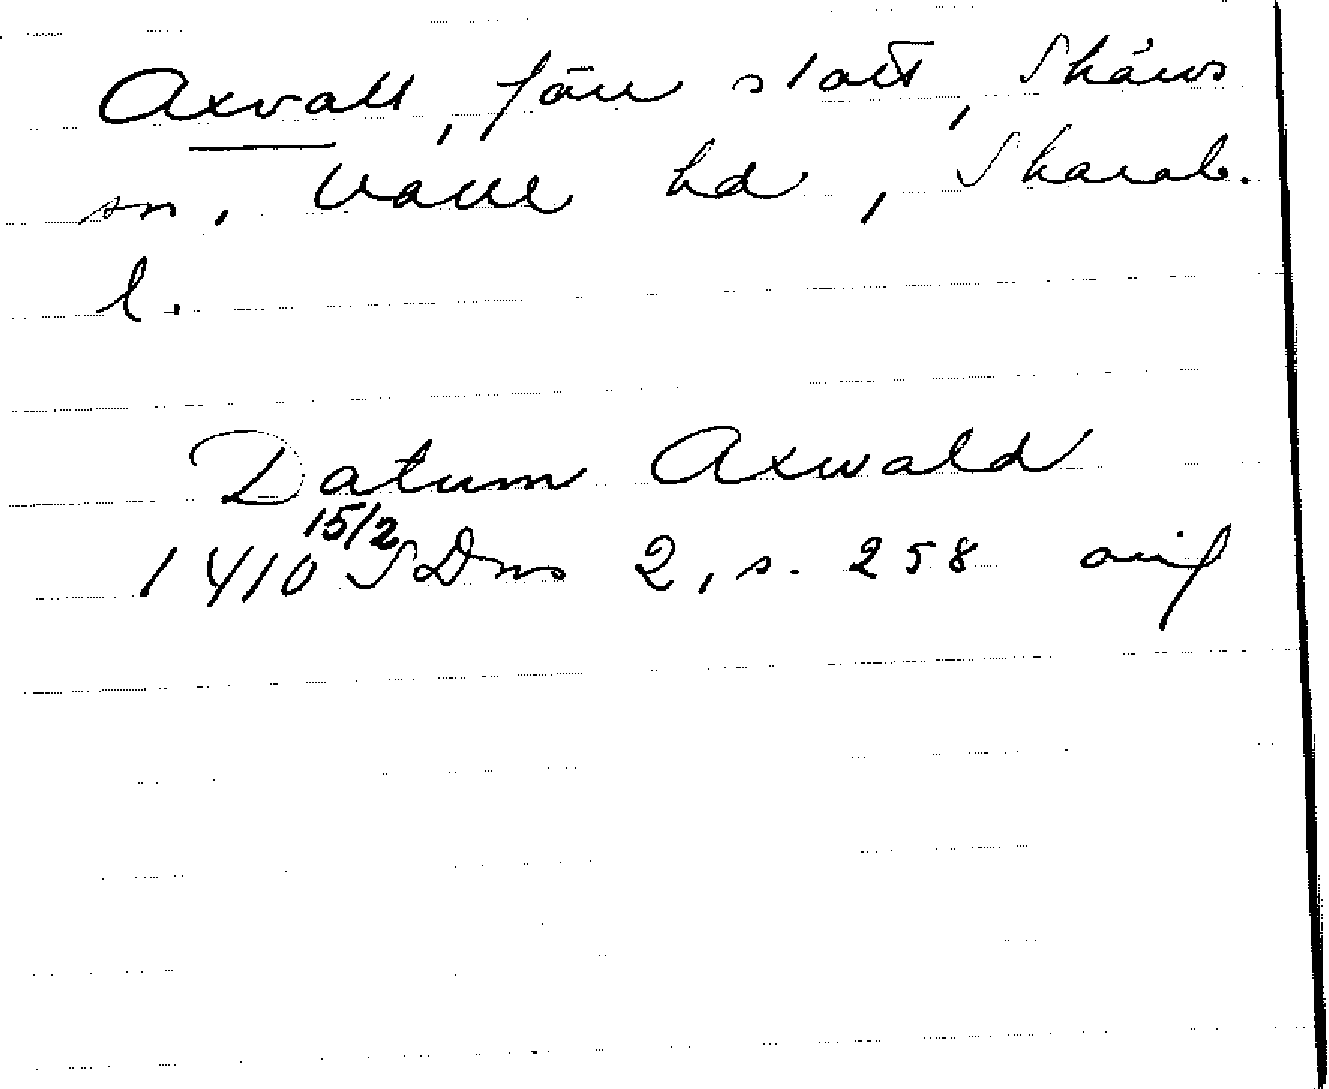 Axvall, förr slott, Skärvs
sn, Valle hd, Skarab.
l.
Datum Axwald
1410 15/2 SDns 2, s. 258 avf